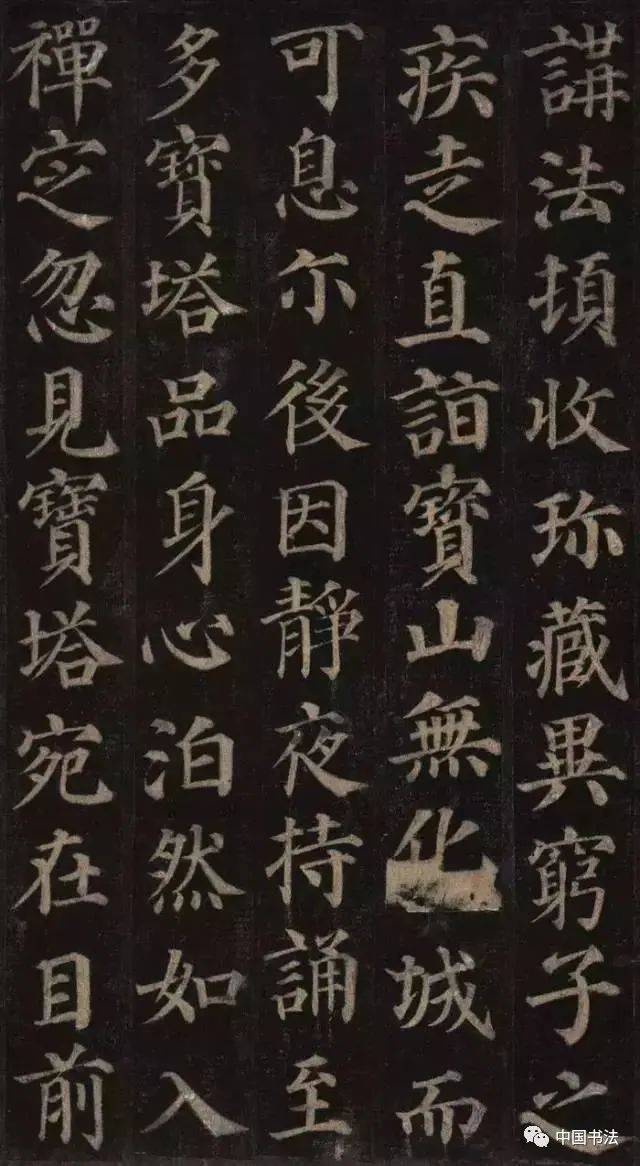 講法頓收珎藏異窮子之
疾走直詣寶山無化城而
可息尒後因靜夜持誦至
多寶塔品身心泊然如入
禪定忽見寶塔宛在目前
中国书法